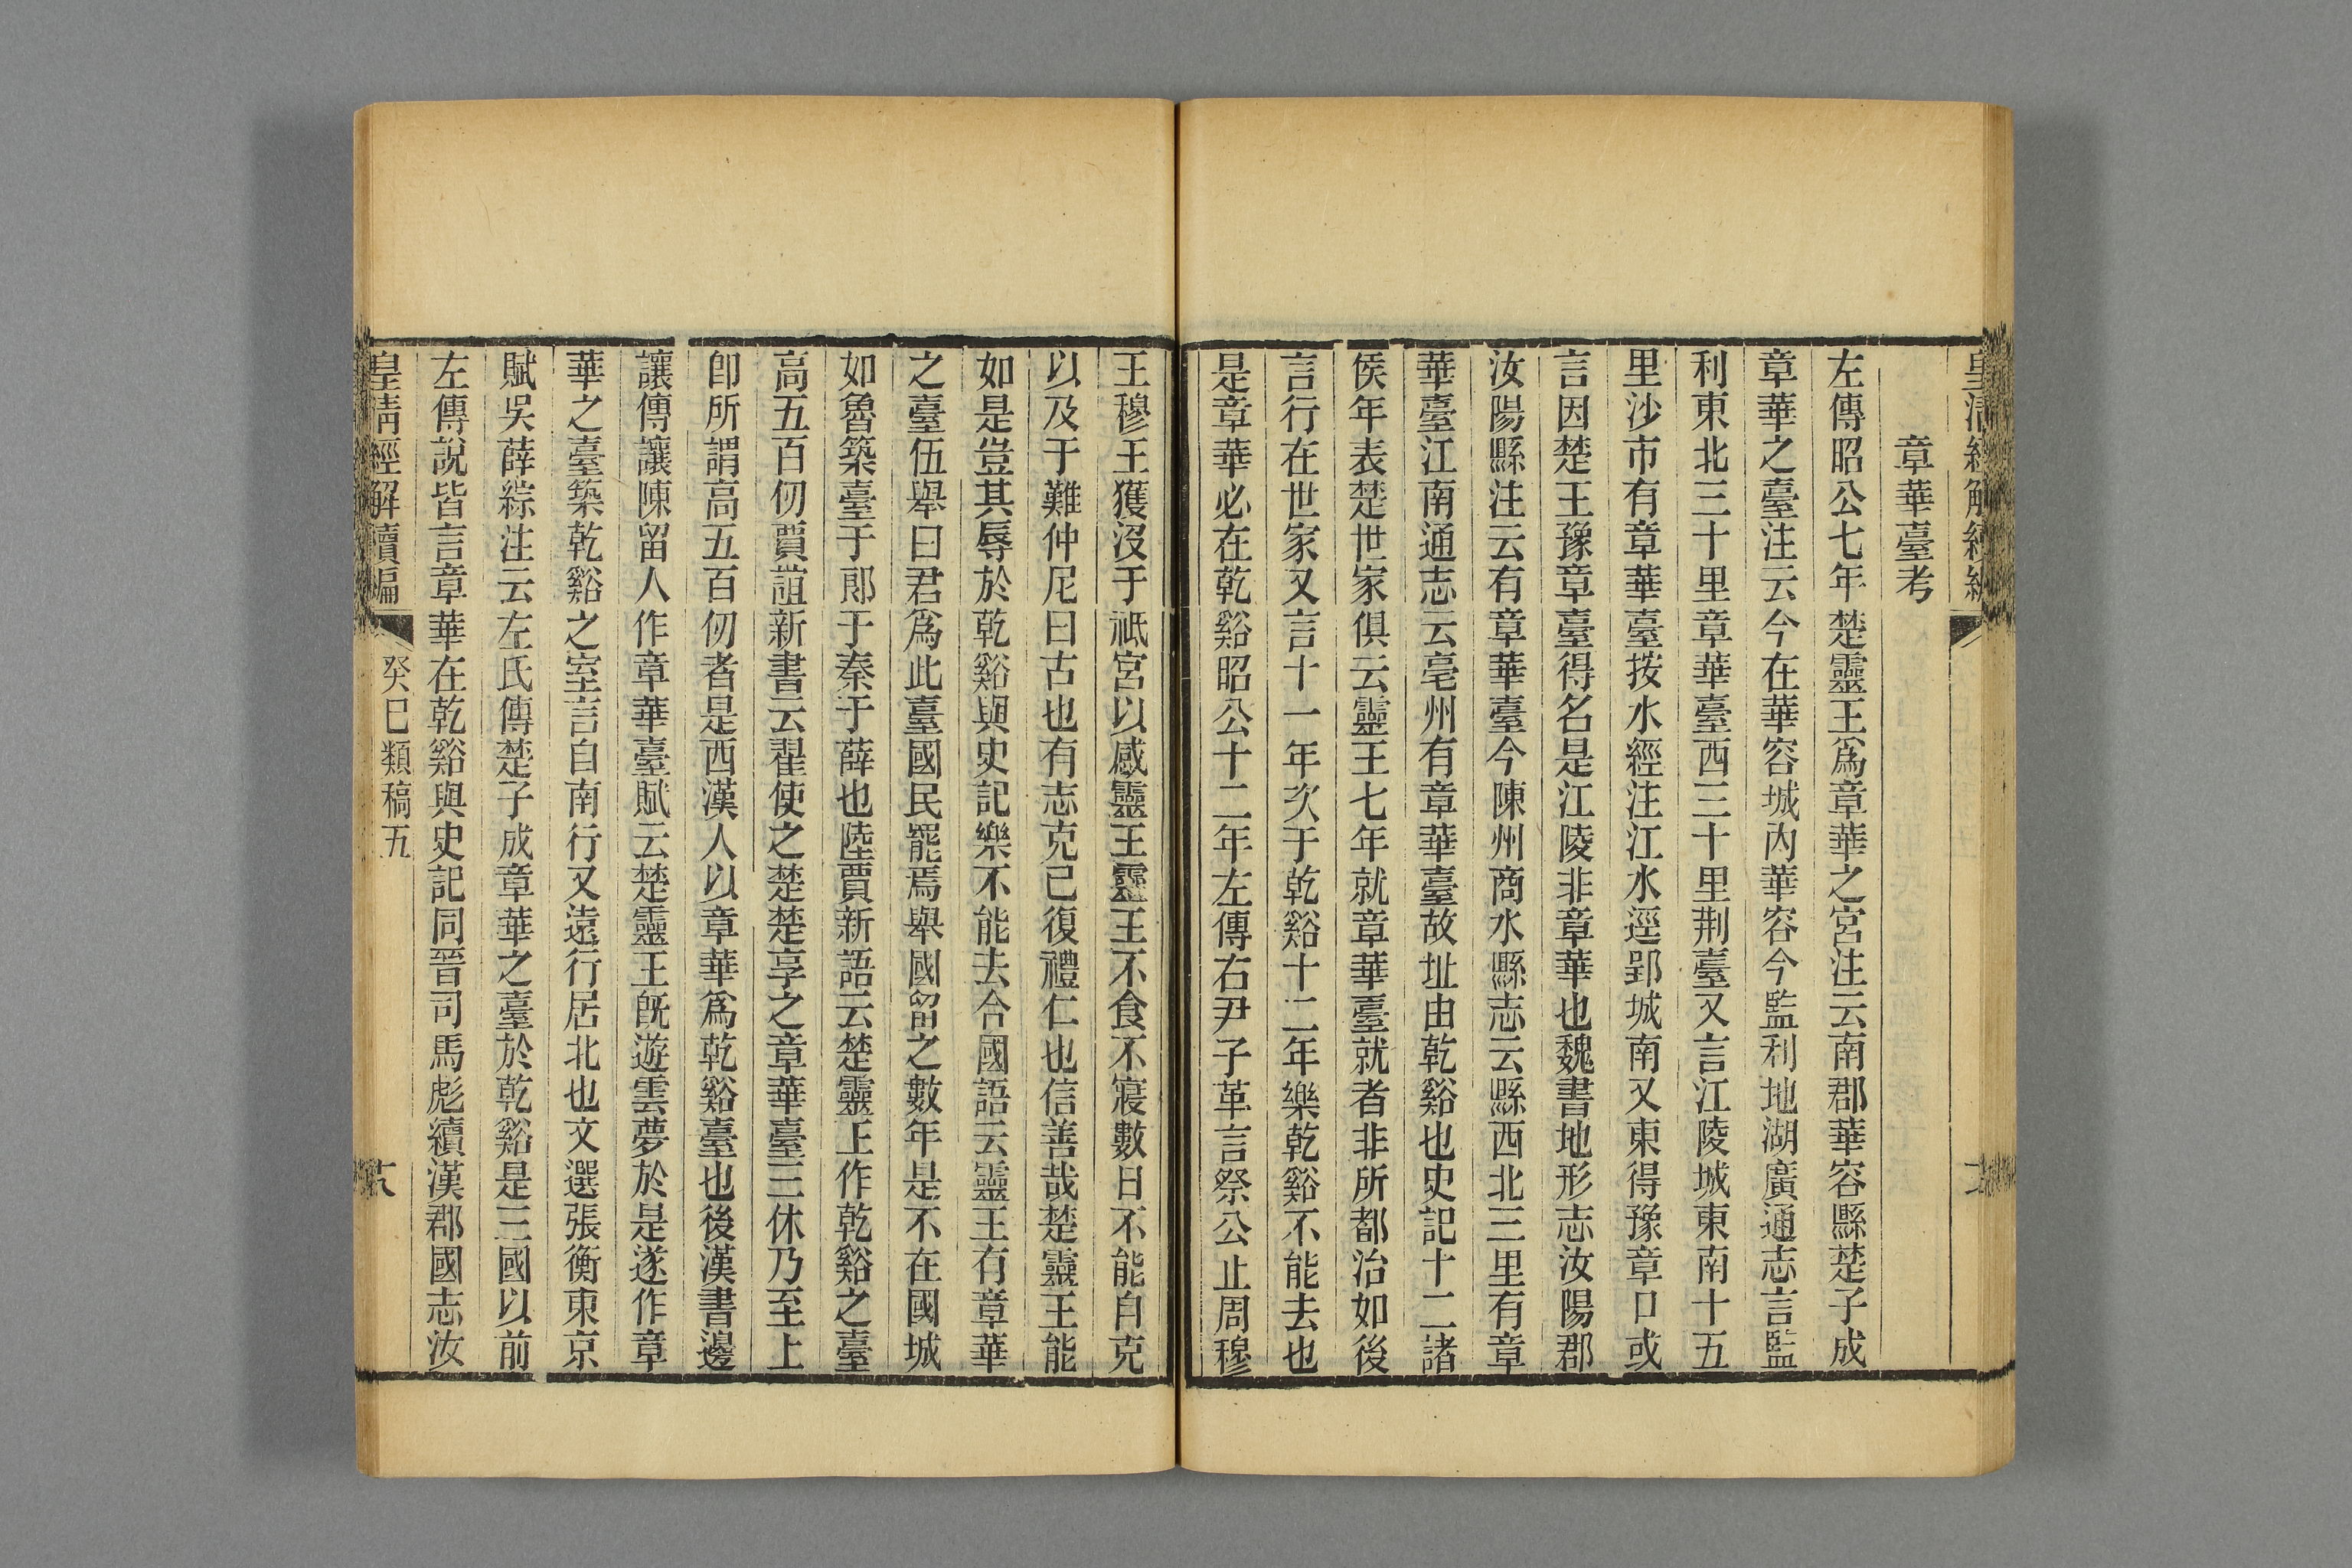 皇清經解續編
章華臺考
左傳昭公七年楚靈王爲章華之宮注云南郡華容縣楚子成
章華之臺注云今在華容城內華容今監利地湖廣通志言監
利東北三十里章華臺西三十里荆臺又言江陵城東南十五
里沙市有章華臺按水經注江水逕郢城南又東得豫章口或
言因楚王豫章臺得名是江陵非章華也魏書地形志汝陽郡
汝陽縣注云有章華臺今陳州商水縣志云縣西北三里有章
華臺江南通志云亳州有章華臺故址由乾谿也史記十二諸
侯年表楚世家俱云靈王七年就章華臺就者非所都治如後
言行在世家又言十一年次于乾谿十二年樂乾谿不能去也
是章華必在乾谿昭公十二年左傳右尹子革言祭公止周穆
王穆王獲沒于祗宮以感靈王靈王不食不寢數日不能自克
以及于難仲尼曰古也有志克己復禮仁也信善哉楚靈王能
如是豈其辱於乾谿與史記樂不能去合國語云靈王有章華
之臺伍舉曰君爲此臺國民罷焉舉國留之數年是不在國城
如魯築臺于郎于秦于薛也陸賈新語云楚靈王作乾谿之臺
高五百仞賈誼新書云翟使之楚楚享之章華臺三休乃至上
卽所謂高五百仞者是西漢人以章華爲乾谿臺也後漢書邊
讓傳讓陳留人作章華臺賦云楚靈王旣遊雲夢於是遂作章
華之臺築乾谿之室言自南行又遠行居北也文選張衡東京
賦吳薛綜注云左氏傳楚子成章華之臺於乾谿是三國以前
左傳說皆言章華在乾谿與史記同晉司馬彪續漢郡國志汝
皇清經解續編
癸巳類稿五